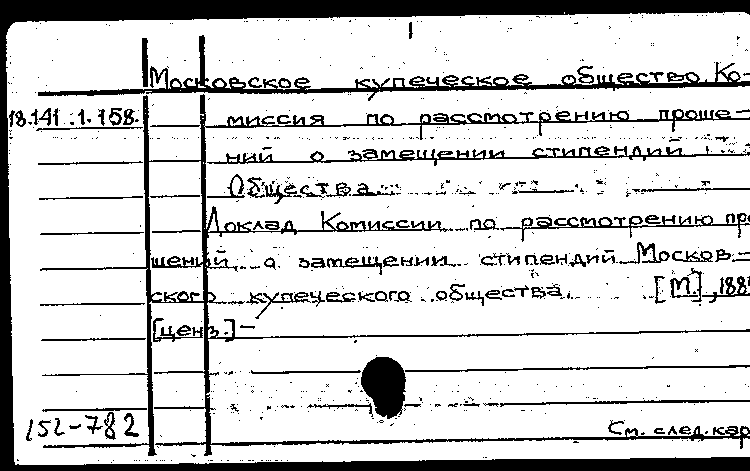 Московское купеческое общество. Ко-
18.141.1.158. миссия по рассмотрению проше-
ний о замещении стипендий
Общества.
Доклад Комиссии по рассмотрению про
шений о замещении стипендий Москов-
ского купеческого общества. [М.], 188
[ценз.] —
152-782 См. след. кар